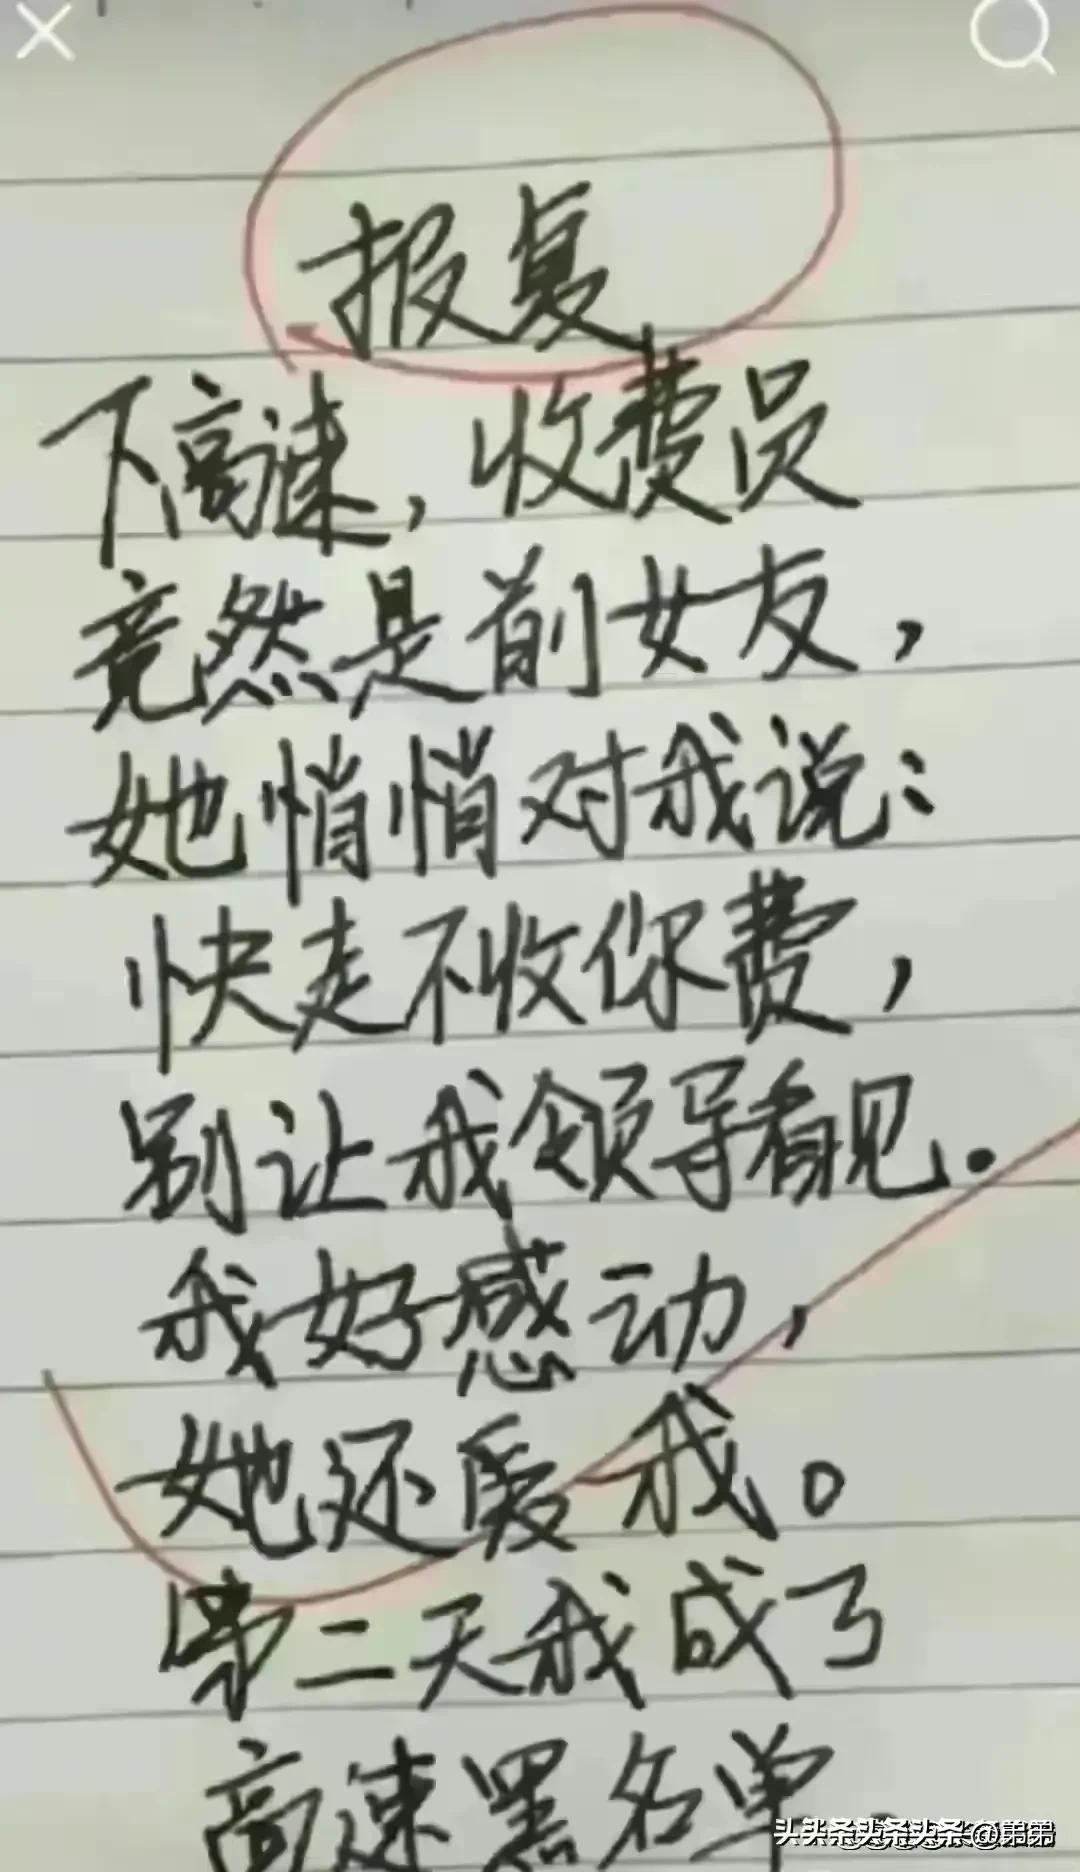 报复
下高速，收费员
竟然是前女友，
她悄悄对我说：
快走不收你费，
别让我领导看见。
我好感动，
她还爱我。
第二天我成了
高速黑名单.
@弟弟